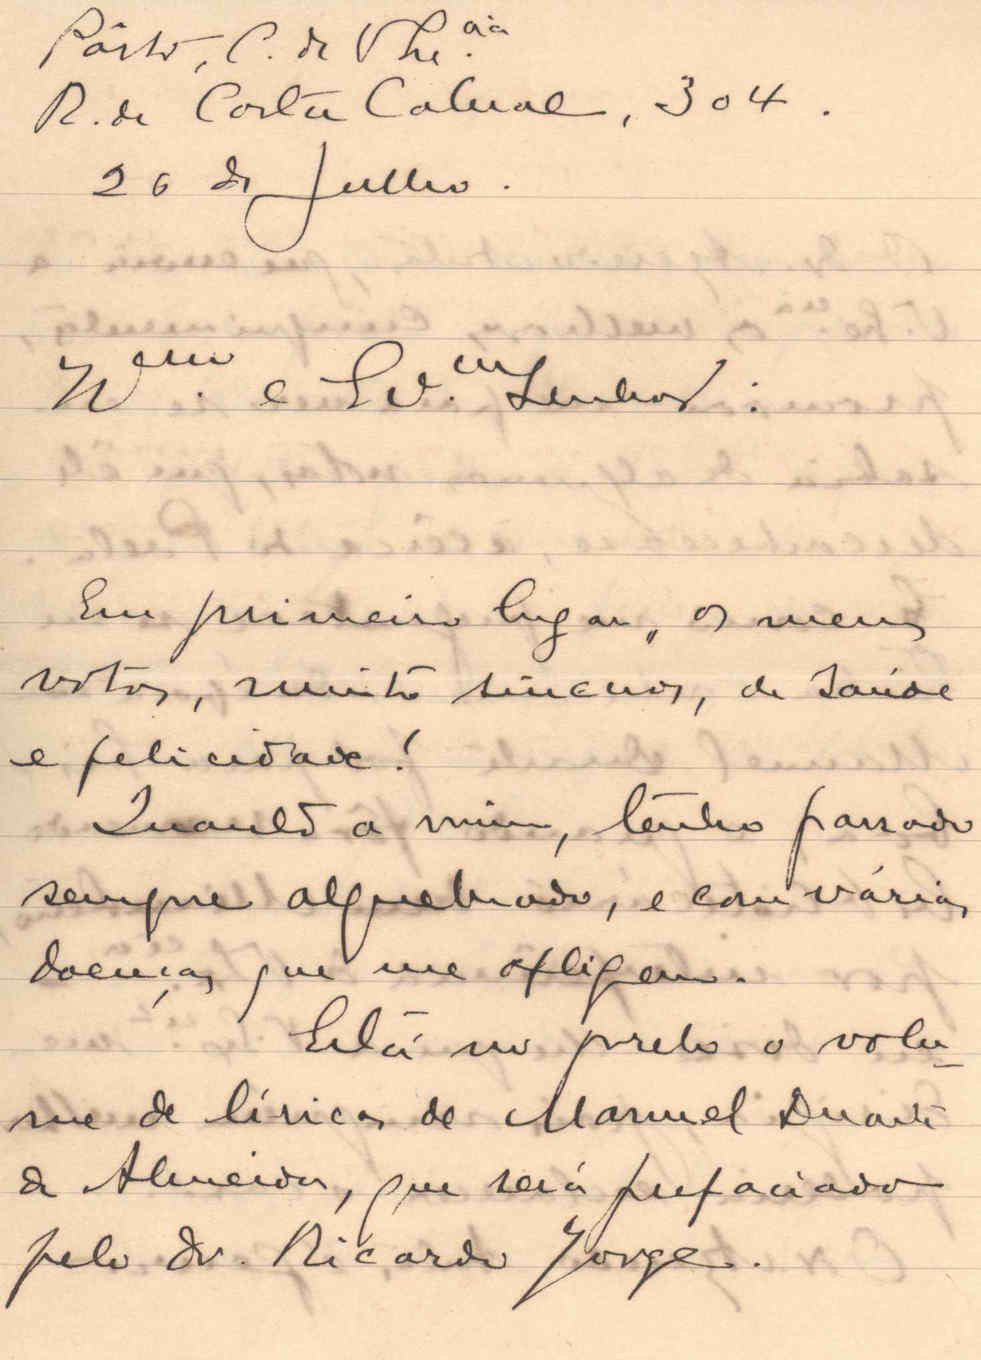 Pôrto, C. de V. Ex.cia
R. de Costa Cabral, 304.
26 de Julho.
Il.mo e Ex.mo Senhor:
Em primeiro lugar, os meus
votos, muito sinceros, de saúde
e felicidade!
Quanto a mim, tenho passado
sempre alquebrado, e com várias
doenças que me afligem.
Está no prelo o volu-
me de líricas de Manuel Duarte
de Almeida, que será prefaciado
pelo dr. Ricardo Jorge.